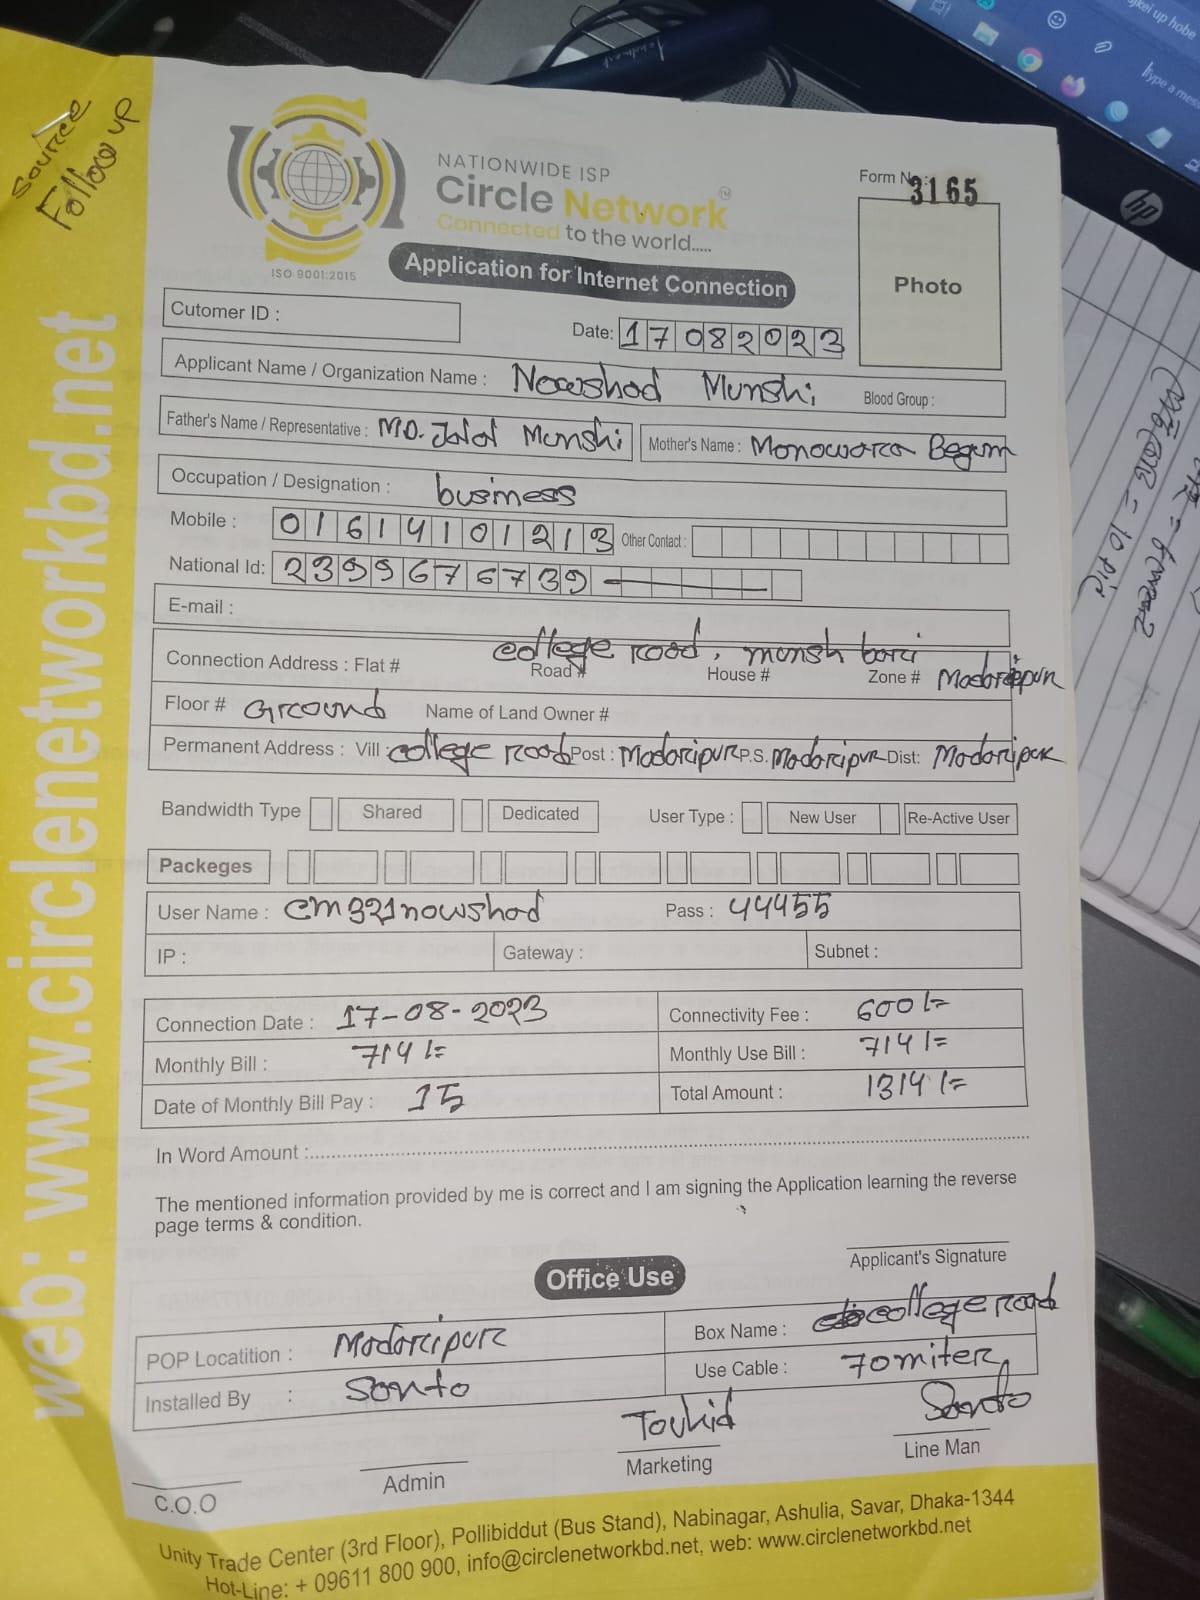 Source
Follow up
NATIONWIDE ISP
Circle Network
Connected to the world.....
ISO 9001:2015
Application for Internet Connection
Form N 3165
Photo
Cutomer ID :
Date: 17082023
Applicant Name / Organization Name : Nowshad Munshi Blood Group :
Father's Name / Representative : MD. Jalal Munshi Mother's Name : Monowara Begum
Occupation / Designation : business
Mobile : 01614101213 Other Contact :
National Id: 2399676739
E-mail :
Connection Address : Flat # college road, munsh bari Road # House # Zone # Madaripur
Floor # Ground Name of Land Owner #
Permanent Address : Vill : college road Post : Madaripur P.S. Madaripur Dist: Madaripur
Bandwidth Type Shared Dedicated User Type : New User Re-Active User
Packeges
User Name : cm321nowshad Pass : 44455
IP : Gateway : Subnet :
Connection Date : 17-08-2023 Connectivity Fee : 600/=
Monthly Bill : 714/= Monthly Use Bill : 714/=
Date of Monthly Bill Pay : 15 Total Amount : 1314/=
In Word Amount :
The mentioned information provided by me is correct and I am signing the Application learning the reverse
page terms & condition.
Applicant's Signature
Office Use
POP Locatition : Madaripur Box Name : college road
Installed By : Santo Use Cable : 70 miter
Touhid Santo
C.O.O Admin Marketing Line Man
Unity Trade Center (3rd Floor), Pollibiddut (Bus Stand), Nabinagar, Ashulia, Savar, Dhaka-1344
Hot-Line: + 09611 800 900, info@circlenetworkbd.net, web: www.circlenetworkbd.net
web: www.circlenetworkbd.net
hp